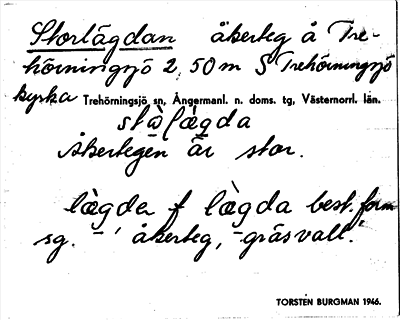 Storlägdan åkerteg å Tre-
hörningsjö 2, 50 m S Trehörningsjö
kyrka Trehörningsjö sn, Ångermanl. n. doms. tg, Västernorrl. län.
stàlægda
Åkertegen är stor.
lægder f lægda best. form
sg. åkerteg, gräsvall.
TORSTEN BURGMAN 1946.